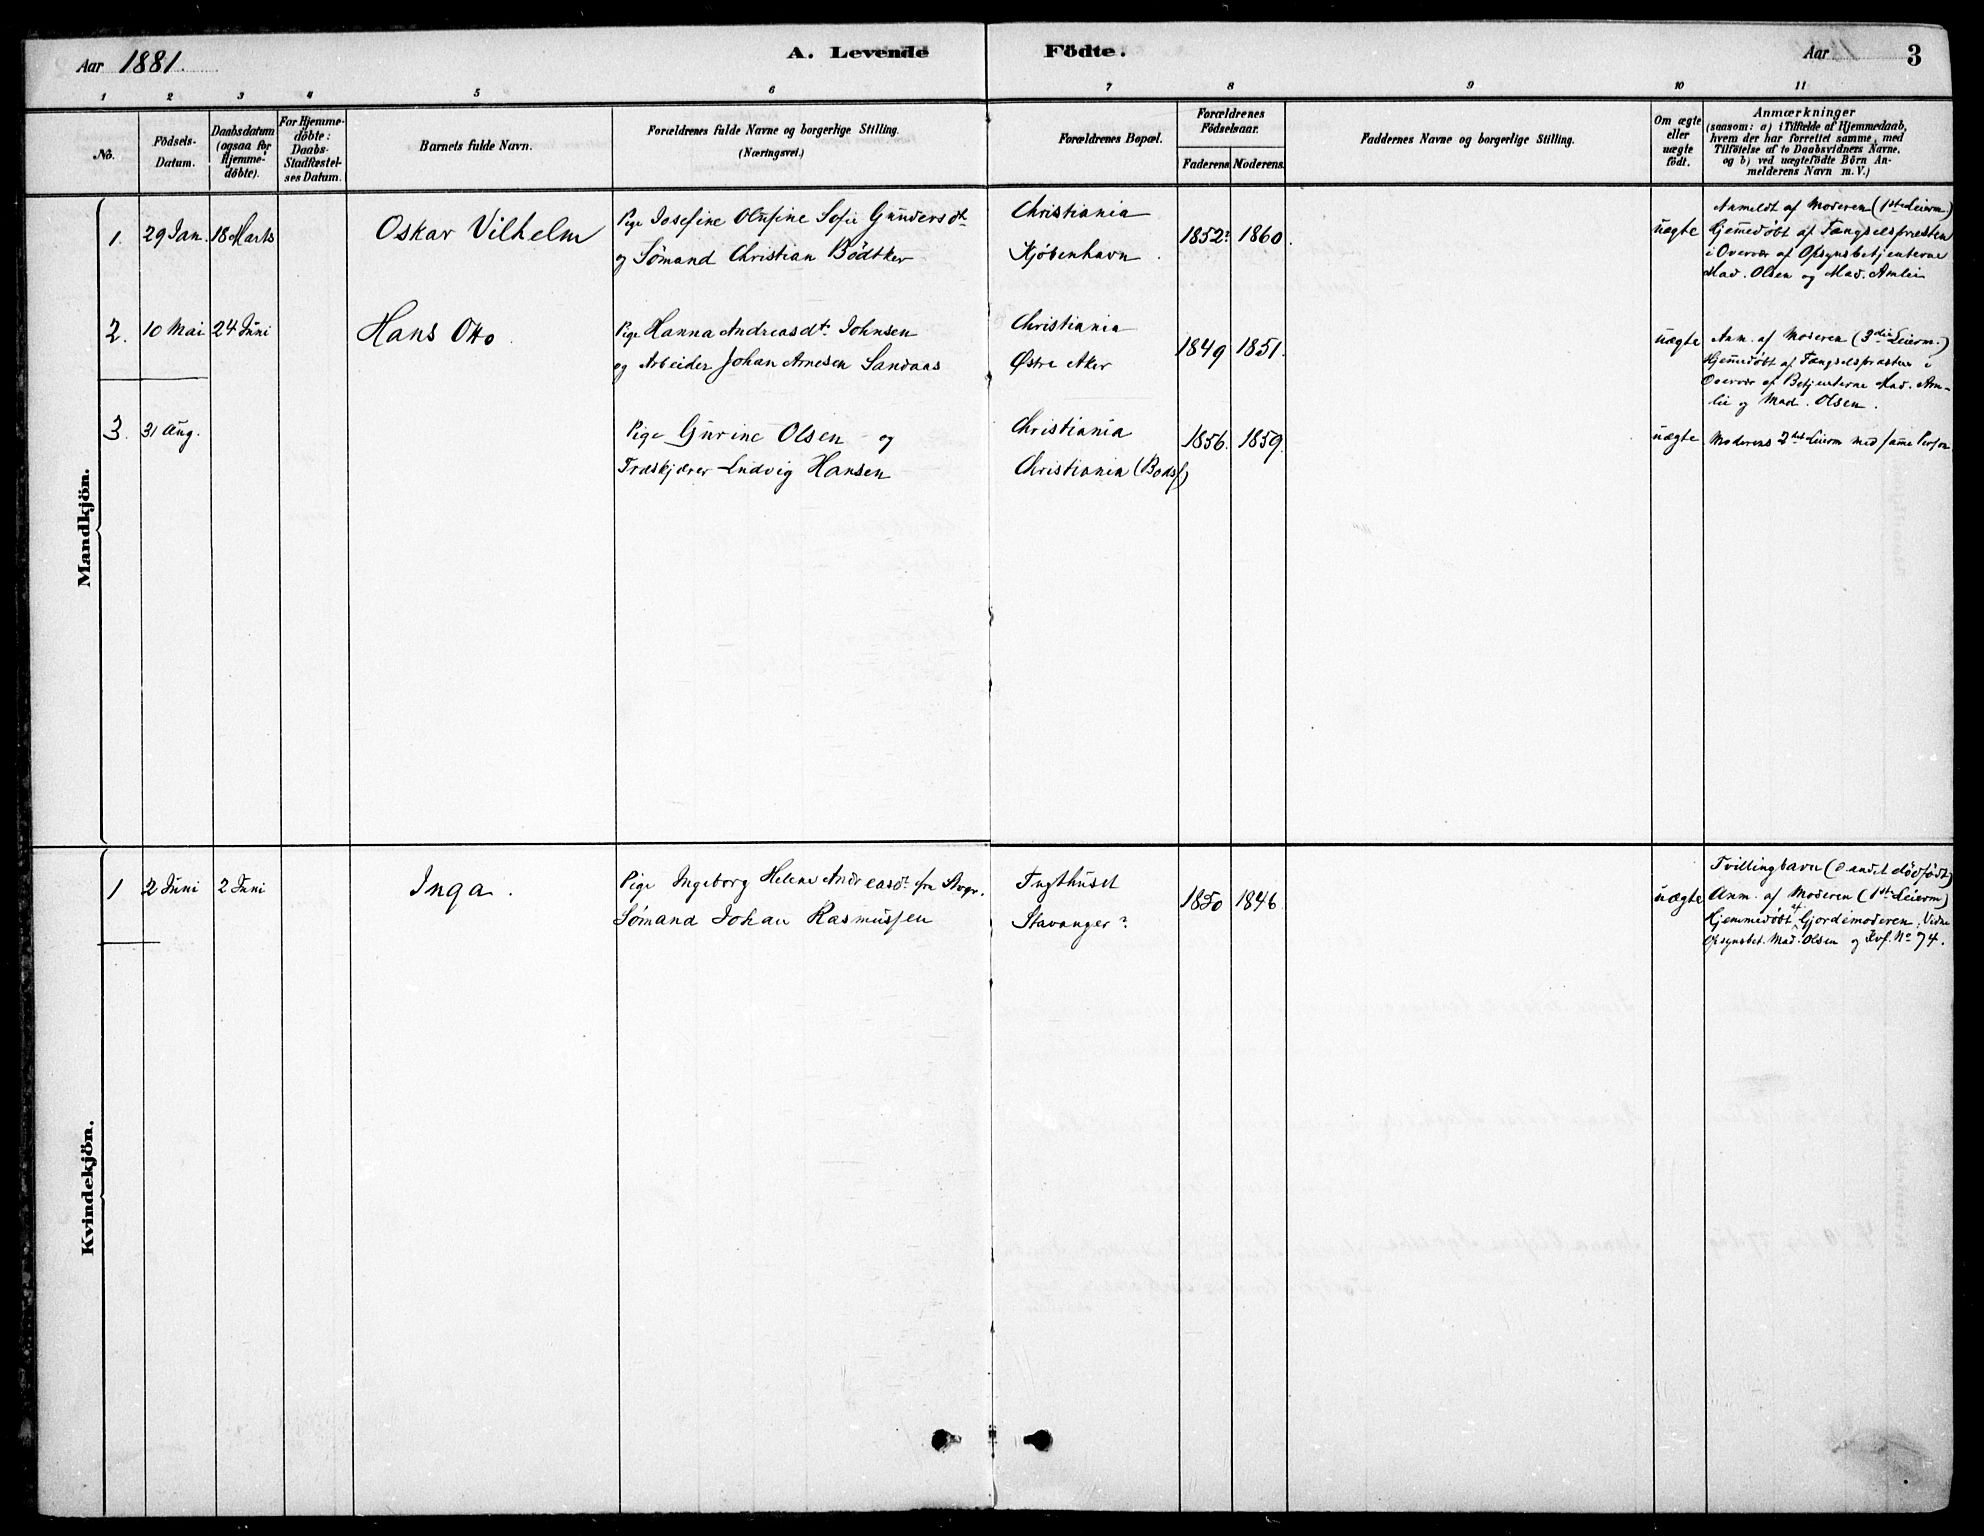 Aar 1881.
A. Levende Födte.
Aar
3
1 2 3 4 5 6 7 8 9 10 11
No.
Födsels-
Datum.
Daabsdatum
(ogsaa for
Hjemme-
döbte).
For Hjemme-
döbte:
Daabs-
Stadfæstel-
ses Datum.
Barnets fulde Navn.
Forældrenes fulde Navne og borgerlige Stilling.
(Næringsvei.)
Forældrenes Bopæl.
Forældrenes
Födselsaar.
Faderens. Moderens.
Faddernes Navne og borgerlige Stilling.
Om ægte
eller
uægte
födt.
Anmærkninger
(saasom: a) i Tilfælde af Hjemmedaab,
hvem der har forrettet samme, med
Tilföielse af to Daabsvidners Navne,
og b) ved uægtefödte Börn An-
melderens Navn m. V.)
Mandkjön.
1. 29 Jan. 18 Marts
Oskar Vilhelm
Pige Josefine Olufine Sofie Gundersdt
og Sømand Christian Bödtker
Christiania
Kjøbenhavn.
1852? 1860.
uægte
Anmeldt af Moderen (1ste Leierm.)
Hjemmedøbt af Fængselspræsten
i Overvær af Opsynsbetjenterne
Mad. Olsen og Mad. Amlie
2. 10 Mai 24 Juni
Hans Otto.
Pige Hanna Andreasdt. Johnsen
og Arbeider Johan Arnesen Sandaas
Christiania
Østre Aker
1849 1851.
uægte
Anm. af Moderen (3die Leierm.)
Hjemmedøbt af Fængselspræsten i
Overvær af Betjenterne Mad. Am-
lie og Mad. Olsen.
3. 31 Aug.
Pige Gurine Olsen og
Træskjærer Ludvig Hansen
Christiania
Christiania (Bodsf)
1856. 1859.
uægte
Moderens 2det Leierm med samme Person
Kvindekjön.
1 2 Juni 2 Juni
Inga.
Pige Ingeborg Helene Andreasdt. fra Stvgr.
Sømand Johan Rasmussen
Tugthuset
Stavanger?
1850 1846
uægte
Tvillingbarn (d andet dødfødt)
Anm. af Moderen (1ste Leierm)
Hjemmedøbt af Gjordemoderen, Vidne
Opsynsbet. Mad. Olsen og Kvf. No 74.